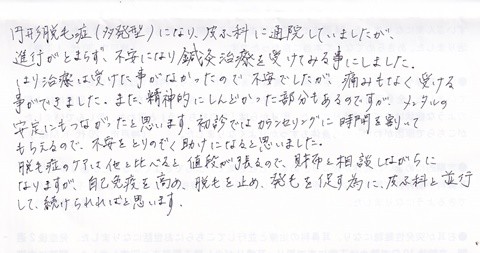 円形脱毛症(多発型)になり、皮ふ科に通院していましたが、
進行がとまらず、不安になり鍼灸治療を受けてみる事にしました。
はり治療は受けた事がなかったので不安でしたが、痛みもなく受ける
事ができました。また、精神的にしんどかった部分もあるのですが、メンタルの
安定にもつながったと思います。初診ではカウンセリングに時間を割いて
もらえるので、不安をとりのぞく助けになると思いました。
脱毛症のケアは他と比べると値段が張るので、財布と相談しながらに
なりますが、自己免疫を高め、脱毛を止め、発毛を促す為に、皮ふ科と並行
して、続けられればと思います。